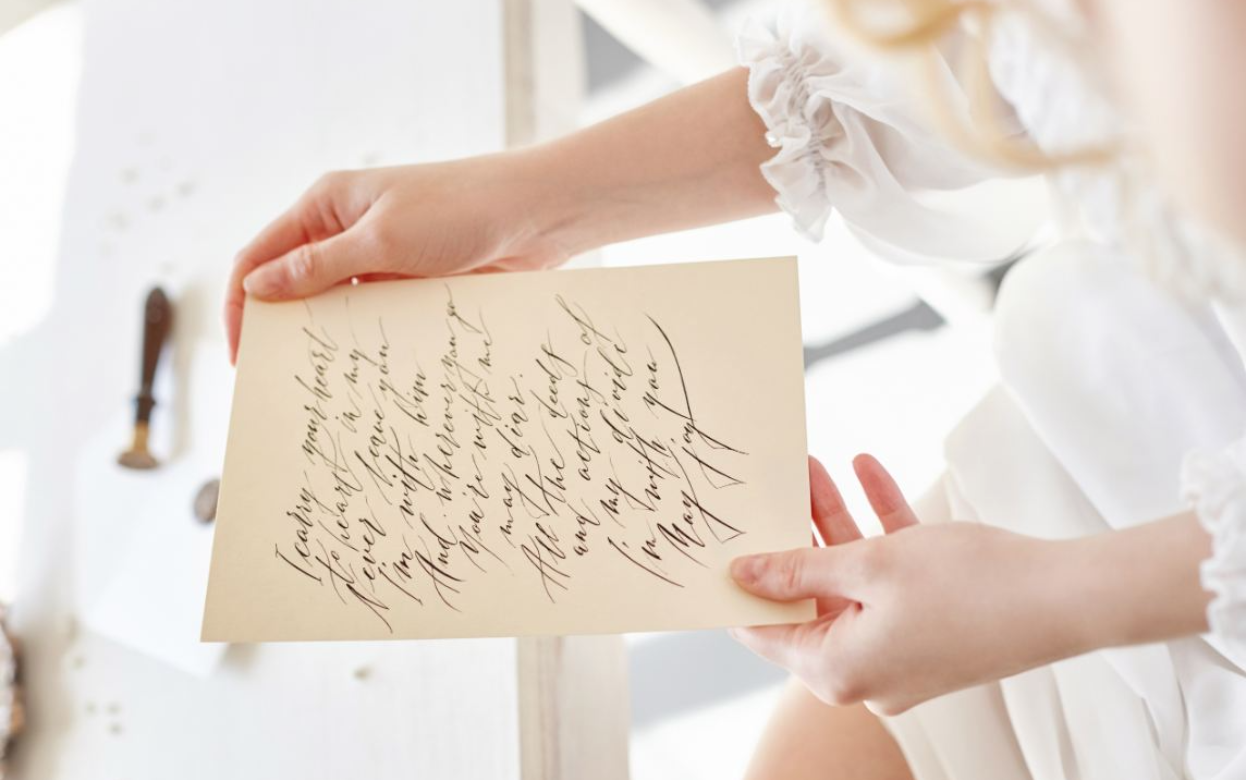 I carry your heart
to heart in my
Never leave you
I'm with him
And wherever you go
You're with me
my diar.
All the deeds
and actions of
in my divide
I'm with you
May Joy